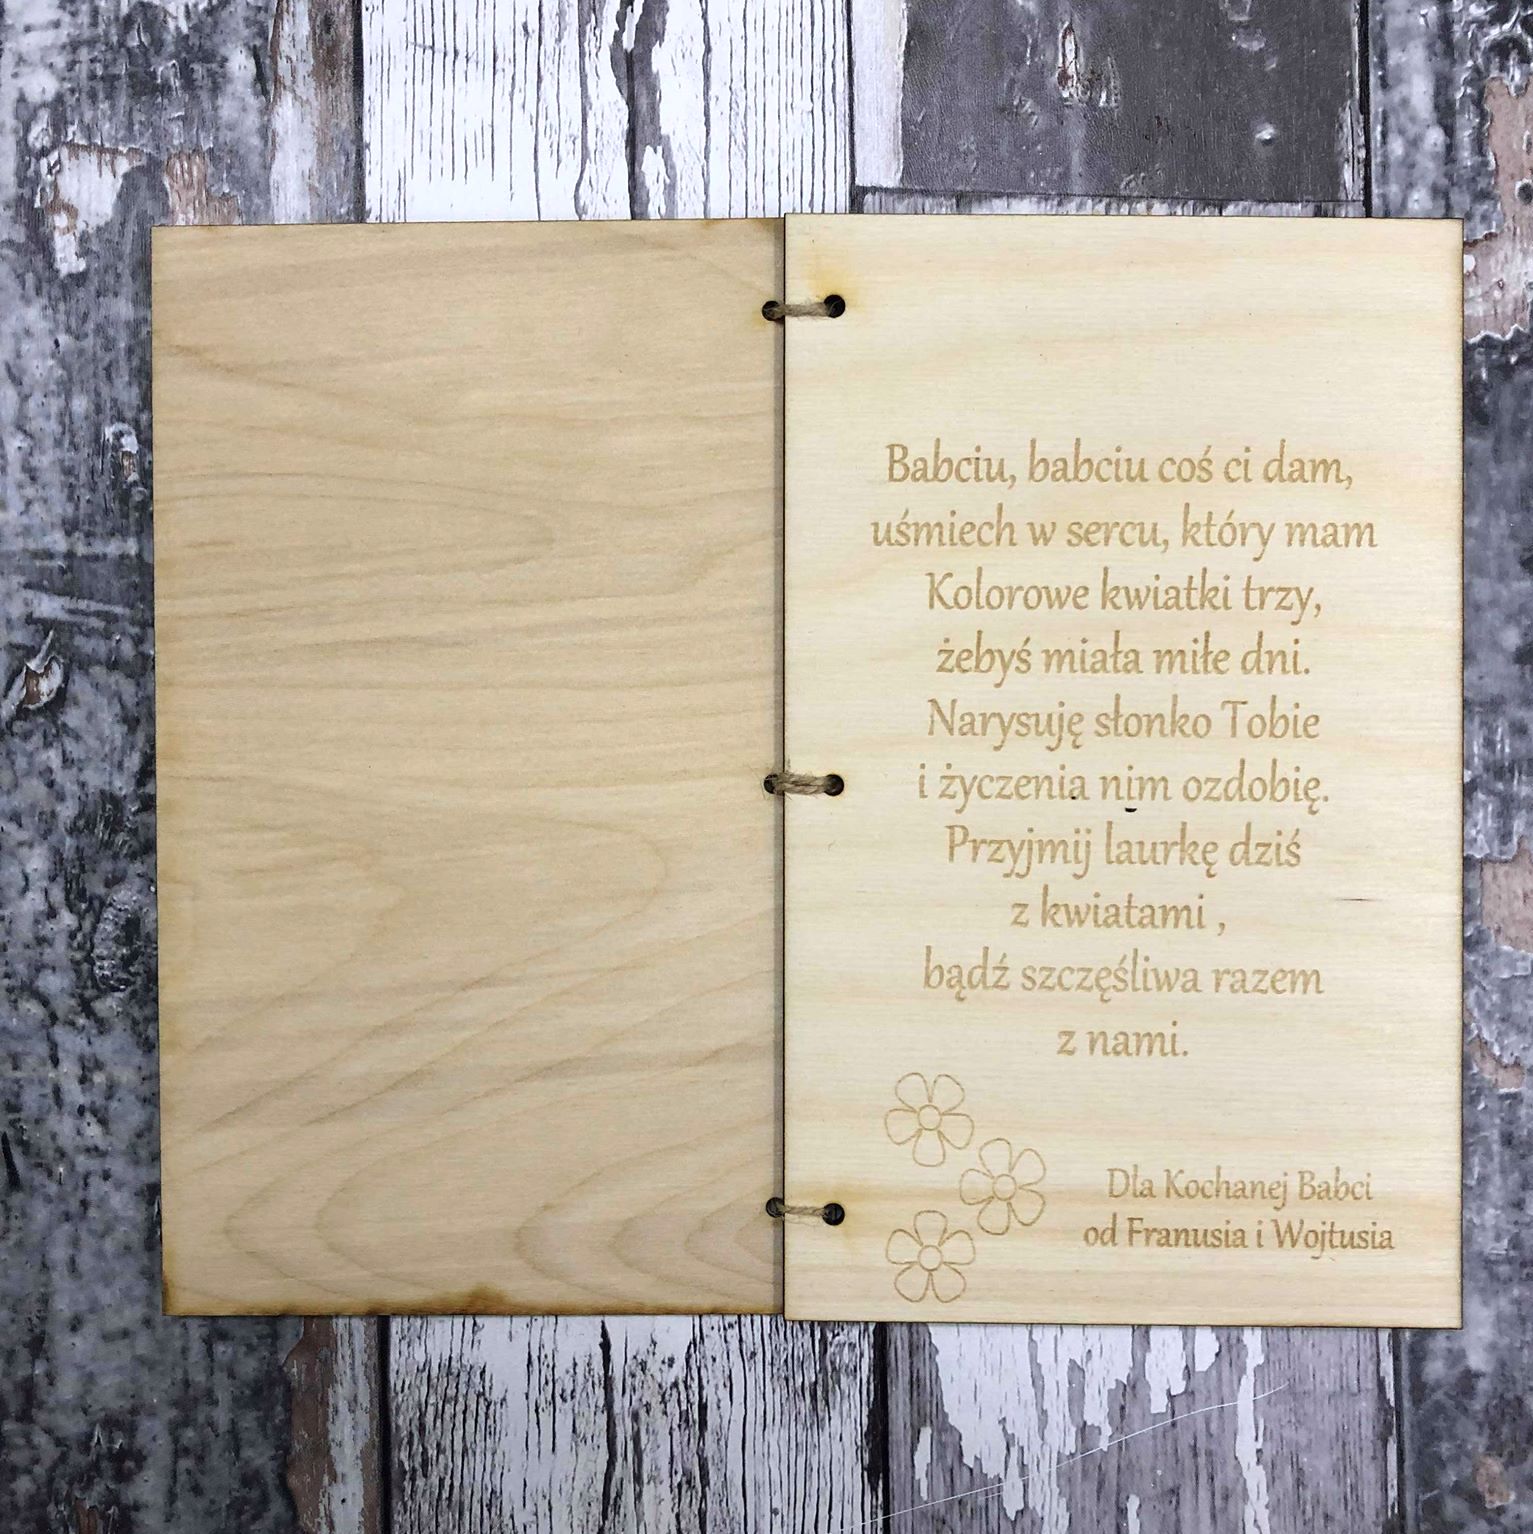 Babciu, babciu coś ci dam,
uśmiech w sercu, który mam
Kolorowe kwiatki trzy,
żebyś miała miłe dni.
Narysuję słonko Tobie
i życzenia nim ozdobię.
Przyjmij laurkę dziś
z kwiatami ,
bądź szczęśliwa razem
z nami.
Dla Kochanej Babci
od Franusia i Wojtusia